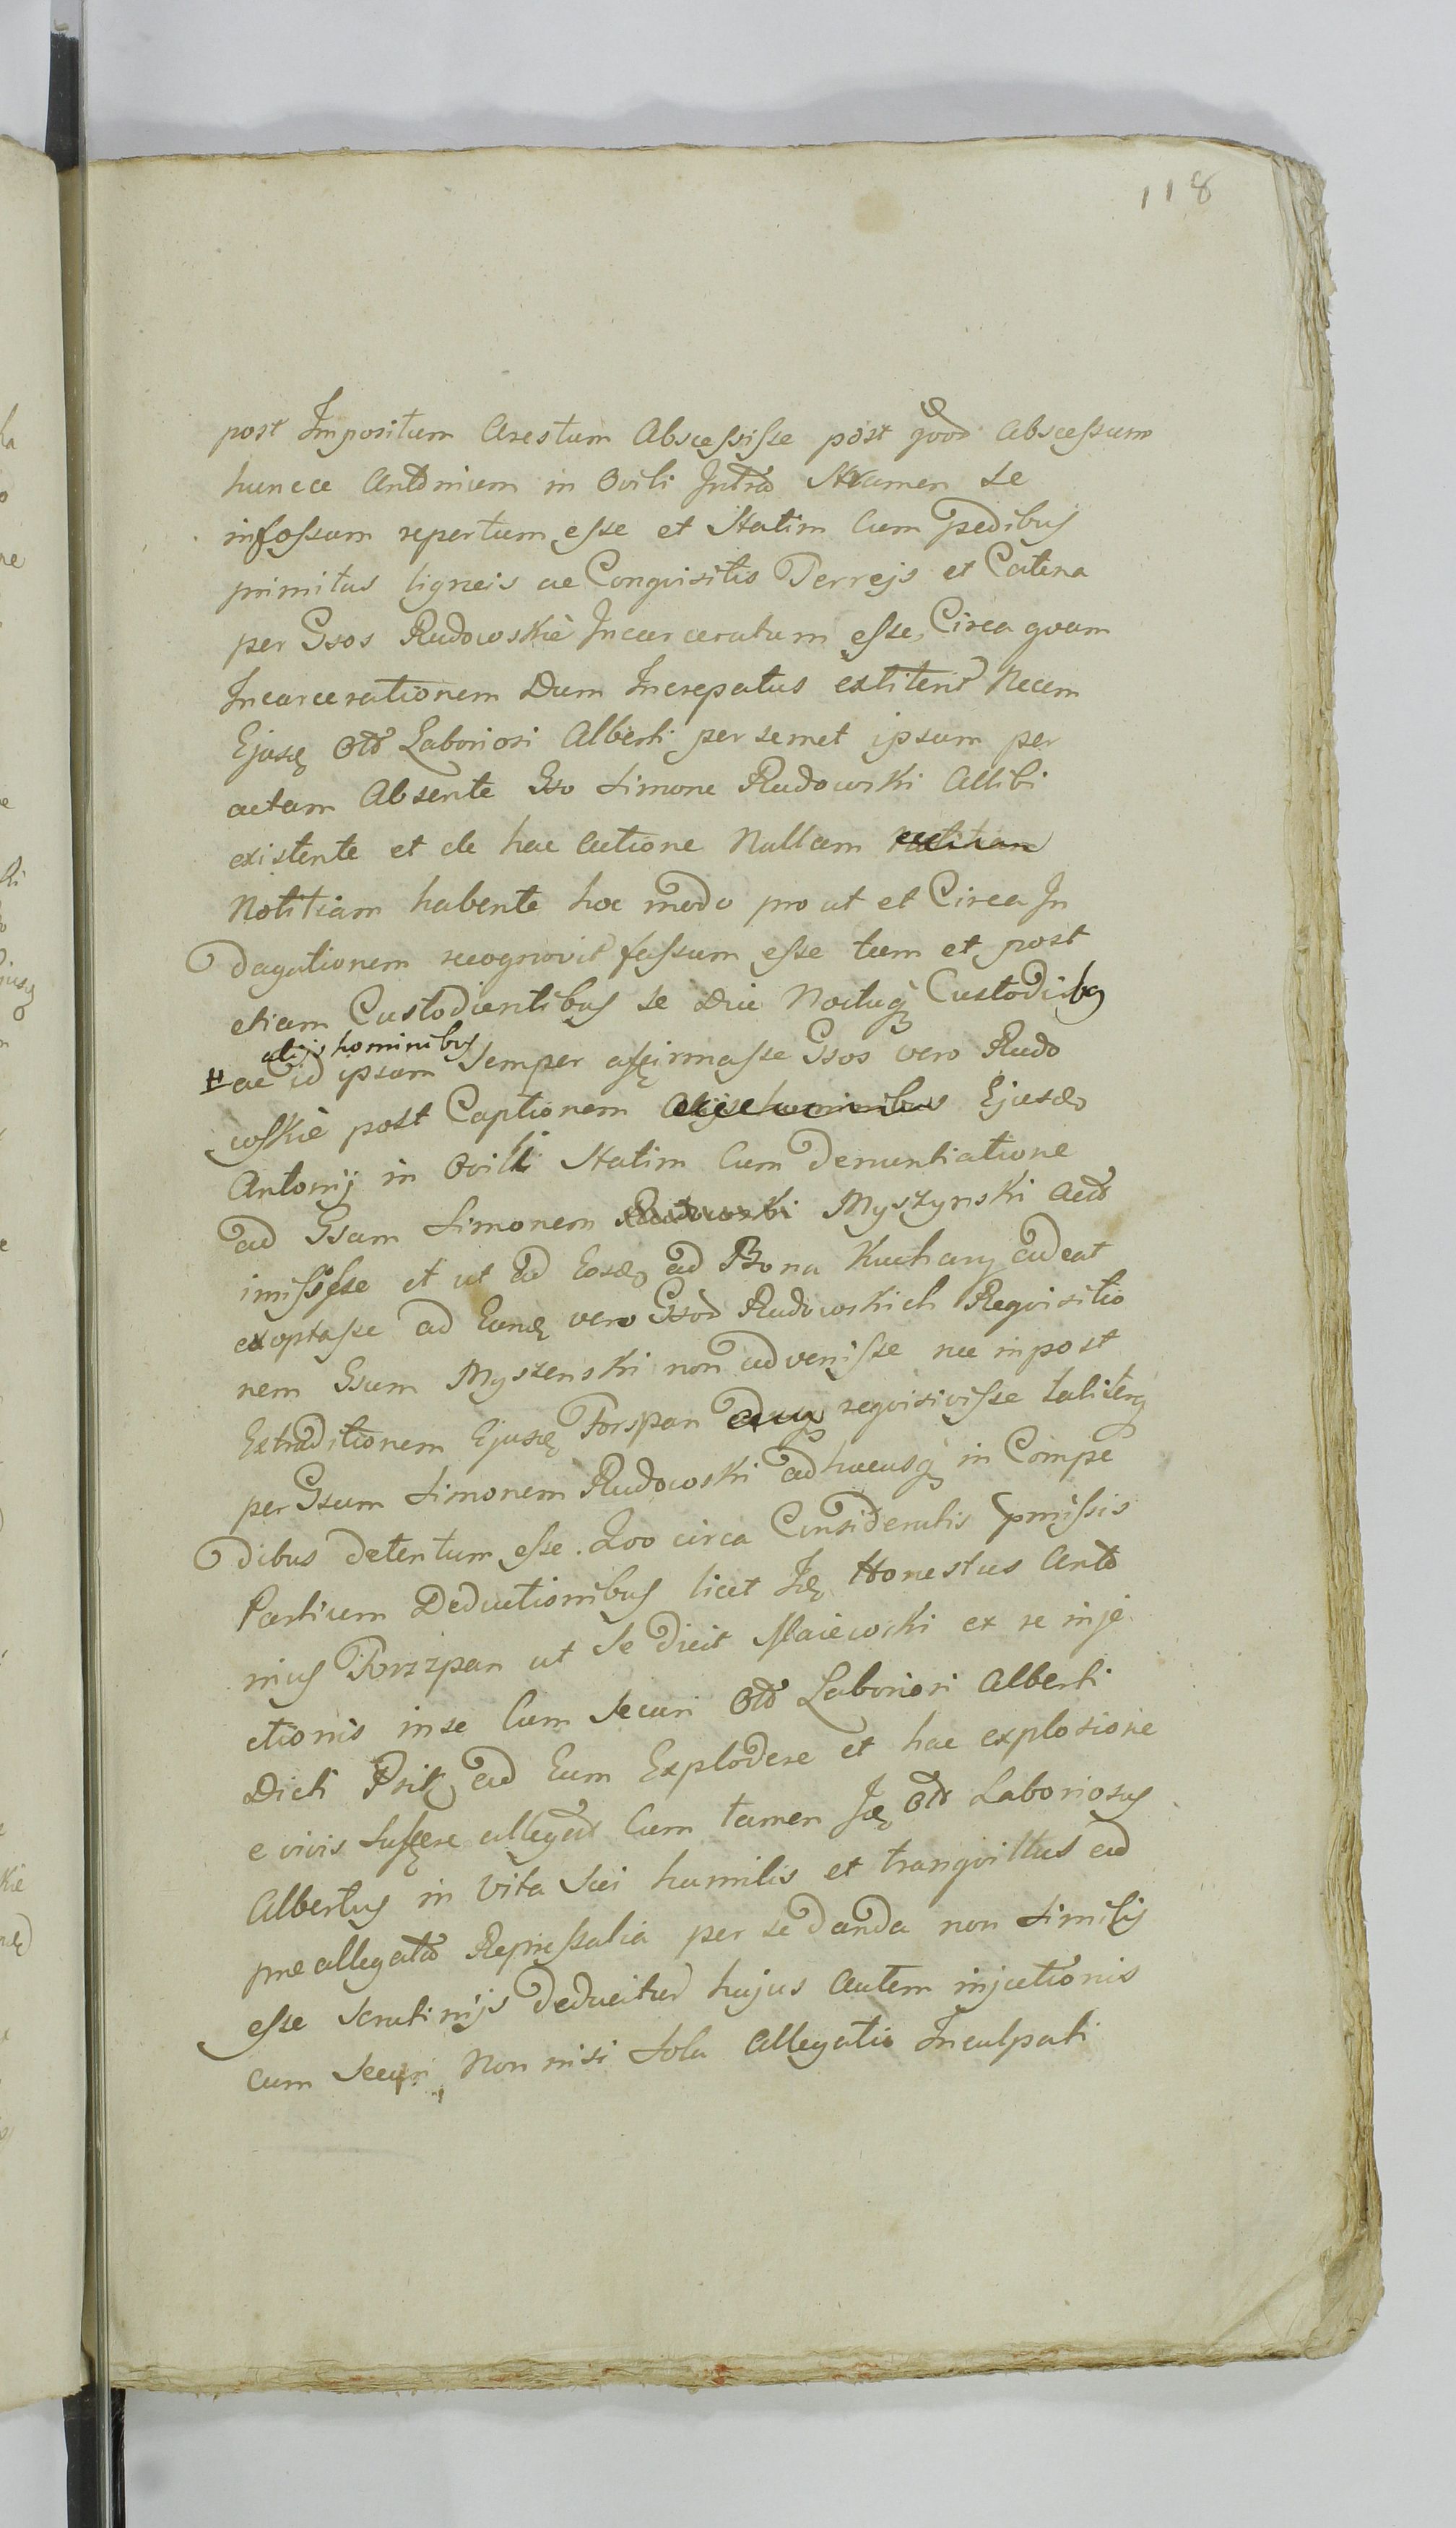 118
post Impositum Arestum Abscessisse post quod Abscessum
huncce Antonium in Ovili Intra Stramen se
infossum repertum esse et Statim Cum pedibus
primitus ligneis ac Conqvisitis Ferrejs et Catena
per Gsos Rudowskie Incarceratum esse, Circa qvam
Incarcerationem Dum Increpatus extiterit Necem
Ejusd Olo Laboriosi Alberti per semet ipsum per
actam Absente Gso Simone Rudowski Allibi
existente et de hac actione Nullam
Notitiam habente hoc modo pro ut et Circa In
dagationem recognovit fassum esse tum et post
etiam Custodientibus se Die Noctuq Custodibq
alijs hominibus
# ac id ipsum Semper affirmasse Gsos vero Rudo
wskie post Captionem alijs hominibus Ejusd
Antonij in Ovili Statim Cum denuntiatione
ad Gsum Simonem Rudowski Myszynski Ad
imisisse et ut ad Eosd ad Bona Kuchary adeat
exoptasse ad Eund vero Gsod Rudowskich Reqvisitio
nem Gsum Myszenski non advenisse nec inpost
Extraditionem Ejusd Forspan reqvisivisse taliterq
per Gsum Simonem Rudowski adhucusq in Compe
dibus detentum esse. Qvo circa Consideratis pmissis
Partium Deductionibus licet Id Honestus Anto
nius Forzzpan ut Se dicit Maiewski ex re inje
ctionis in se Cum Securi Olo Laboriosi Alberti
Dicti Psik ad Eum Explodere et hac explosione
e vivis Sustere allegat Cum tamen Id Olo Laboriosus
Albertus in Vita Sui humilis et tranqvillus ad
pre allegata Repressalia per se danda non Similis
esse Scrutinijs deducitur hujus Autem injectionis
cum Securi Non nisi Sola Allegatio Inculpati